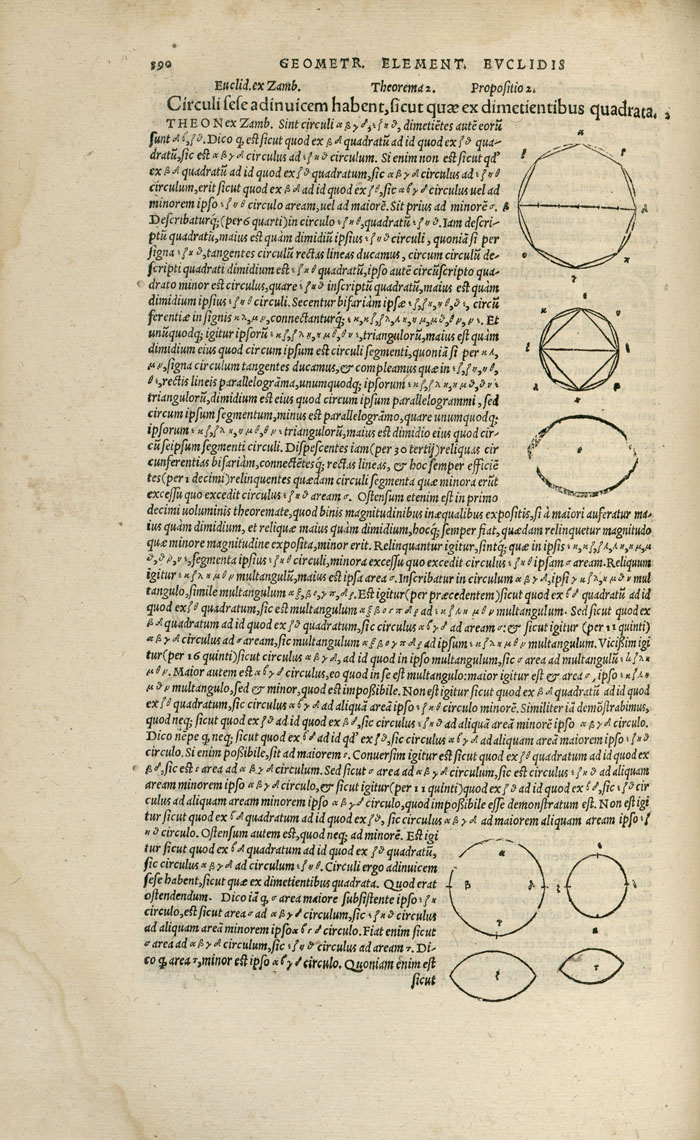 390 GEOMETR. ELEMENT. EVCLIDIS
Euclid. ex Zamb. Theorema 2. Propositio 2.
Circuli sese adinuicem habent, sicut quæ ex dimetientibus quadrata. 2
THEON ex Zamb. Sint circuli αβγδ, εζηθ, dimetiẽtes autẽ eorũ
sunt βδ, ζθ. Dico q, est sicut quod ex βδ quadratũ ad id quod ex ζθ qua-
dratũ, sic est αβγδ circulus ad εζηθ circulum. Si enim non est sicut qd'
ex βδ quadratũ ad id quod ex ζθ quadratum, sic αβγδ circulus ad εζηθ
circulum, erit sicut quod ex βδ ad id quod ex ζθ, sic αβγδ circulus uel ad
minorem ipso εζηθ circulo aream, uel ad maiorẽ. Sit prius ad minorẽ σ.
Describaturq;(per 6 quarti)in circulo εζηθ, quadratũ εζηθ. Iam descri-
ptũ quadratũ, maius est quàm dimidiũ ipsius εζηθ circuli, quoniã si per
signa εζηθ, tangentes circulũ rectas lineas ducamus, circum circulũ de-
scripti quadrati dimidium est εζηθ quadratũ, ipso autẽ circũscripto qua-
drato minor est circulus, quare εζηθ inscriptũ quadratũ, maius est quàm
dimidium ipsius εζηθ circuli. Secentur bifariàm ipsæ εζ, ζη, ηθ, θε, circũ
ferentiæ in signis κ, λ, μ, ν, connectanturq; εκ, κζ, ζλ, λη, ημ, μθ, θν, νε. Et
unũquodq; igitur ipsorũ εκζ, ζλη, ημθ, θνε, triangulorũ, maius est quàm
dimidium eius quod circum ipsum est circuli segmenti, quoniã si per κ, λ,
μ, ν, signa circulum tangentes ducamus, & compleamus quæ in εζ, ζη, ηθ,
θε, rectis lineis parallelogrãma, unumquodq; ipsorum εκζ, ζλη, ημθ, θνε
triangulorũ, dimidium est eius quod circum ipsum parallelogrammi, sed
circum ipsum segmentum, minus est parallelogrãmo, quare unumquodq;
ipsorum εκζ, ζλη, ημθ, θνε triangulorũ, maius est dimidio eius quod cir-
cũ seipsum segmenti circuli. Dispescentes iam(per 30 tertij)reliquas cir
cunferentias bifariàm, connectẽtesq; rectas lineas, & hoc semper efficiẽ
tes(per 1 decimi)relinquentes quædam circuli segmenta quæ minora erũt
excessu quo excedit circulus εζηθ aream σ. Ostensum etenim est in primo
decimi uoluminis theoremate, quod binis magnitudinibus inæqualibus expositis, si à maiori auferatur ma-
ius quàm dimidium, et reliquæ maius quàm dimidium, hocq; semper fiat, quædam relinquetur magnitudo
quæ minore magnitudine exposita, minor erit. Relinquantur igitur, sintq; quæ in ipsis εκ, κζ, ζλ, λη, ημ, μ
θ, θν, νε, segmenta ipsius εζηθ circuli, minora excessu quo excedit circulus εζηθ ipsam σ aream. Reliquum
igitur εκζληµθν multangulũ, maius est ipsa area σ. Inscribatur in circulum αβγδ, ipsi εκζληµθν mul
tangulo, simile multangulum αξβογπδρ. Est igitur(per præcedentem)sicut quod ex βδ quadratũ ad id
quod ex ζθ quadratum, sic est multangulum αξβογπδρ ad εκζληµθν multangulum. Sed sicut quod ex
βδ quadratum ad id quod ex ζθ quadratum, sic circulus αβγδ ad aream σ: & sicut igitur (per 11 quinti)
αβγδ circulus ad σ aream, sic multangulum αξβογπδρ ad ipsum εκζληµθν multangulum. Vicißim igi
tur(per 16 quinti)sicut circulus αβγδ, ad id quod in ipso multangulum, sic σ area ad multangulũ εκζλη
µθν. Maior autem est αβγδ circulus, eo quod in se est multangulo: maior igitur est & area σ, ipso εκζλη
µθν multangulo, sed & minor, quod est impoßibile. Non est igitur sicut quod ex βδ quadratũ ad id quod
ex ζθ quadratum, sic circulus αβγδ ad aliquã areã ipso εζηθ circulo minorẽ. Similiter iã demõstrabimus,
quod neq; sicut quod ex ζθ ad id quod ex βδ, sic circulus εζηθ ad aliquã areã minorẽ ipso αβγδ circulo.
Dico nẽpe q, neq; sicut quod ex βδ ad id qd' ex ζθ, sic circulus αβγδ ad aliquam areã maiorem ipso εζηθ
circulo. Si enim poßibile, sit ad maiorem σ. Conuersim igitur est sicut quod ex ζθ quadratum ad id quod ex
βδ, sic est σ area ad αβγδ circulum. Sed sicut σ area ad αβγδ circulum, sic est circulus εζηθ ad aliquam
aream minorem ipso αβγδ circulo, & sicut igitur(per 11 quinti)quod ex ζθ ad id quod ex βδ, sic εζηθ cir
culus ad aliquam aream minorem ipso αβγδ circulo, quod impoßibile esse demonstratum est. Non est igi
tur sicut quod ex βδ quadratum ad id quod ex ζθ, sic circulus αβγδ ad maiorem aliquam aream ipso εζ
ηθ circulo. Ostensum autem est, quod neq; ad minorẽ. Est igi
tur sicut quod ex βδ quadratum ad id quod ex ζθ quadratũ,
sic circulus αβγδ ad circulum εζηθ. Circuli ergo adinuicem
sese habent, sicut quæ ex dimetientibus quadrata. Quod erat
ostendendum. Dico iã q, σ area maiore subsistente ipso εζηθ
circulo, est sicut area σ ad αβγδ circulum, sic εζηθ circulus
ad aliquam aream minorem ipso αβγδ circulo. Fiat enim sicut
σ area ad αβγδ circulum, sic εζηθ circulus ad aream τ. Di-
co q, area τ, minor est ipso αβγδ circulo. Quoniam enim est
sicut